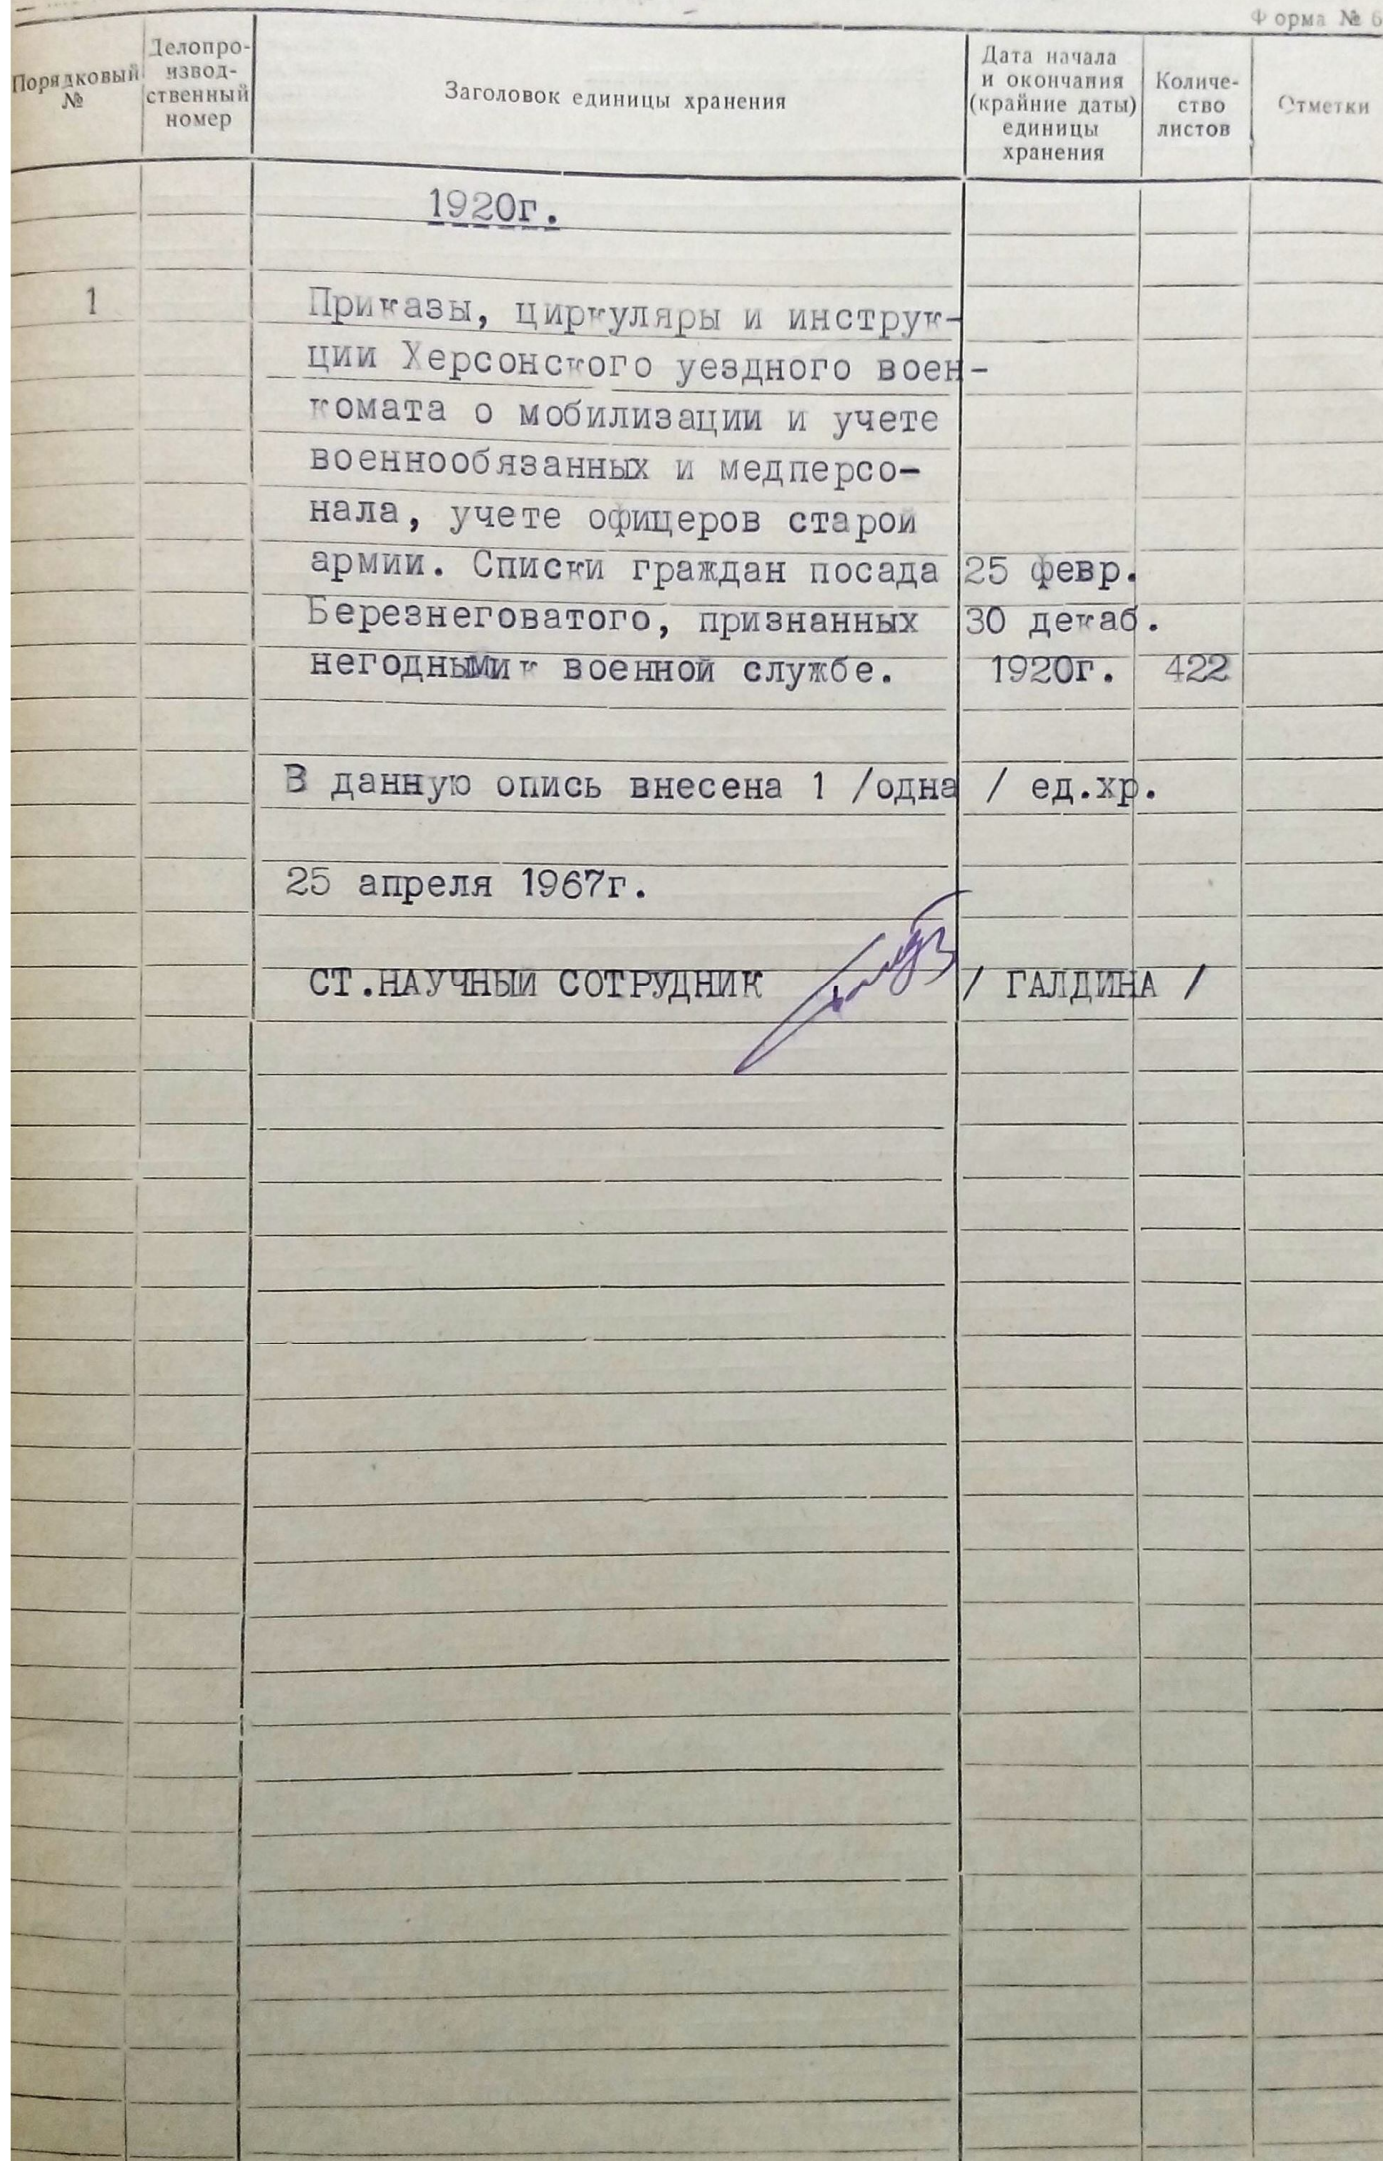 Форма № 6
Порядковый №
Делопро-
извод-
ственный
номер
Заголовок единицы хранения
Дата начала
и окончания
(крайние даты)
единицы
хранения
Количе-
ство
листов
Отметки
1920г.
1 Приказы, циркуляры и инструк-
ции Херсонского уездного воен-
комата о мобилизации и учете
военнообязанных и медперсо-
нала, учете офицеров старой
армии. Списки граждан посада 25 февр.
Березнеговатого, признанных 30 декаб.
негодными к военной службе. 1920г. 422
В данную опись внесена 1 /одна / ед.хр.
25 апреля 1967г.
СТ.НАУЧНЫЙ СОТРУДНИК / ГАЛДИНА /